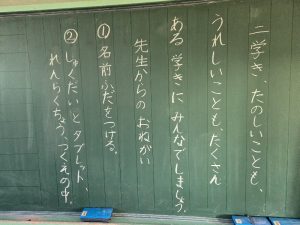 二学き、たのしいことも、
うれしいことも、たくさん
ある学きにみんなでしましょう。
先生からのおねがい
①名前ふだをつける。
②しゅくだいとタブレット、
れんらくちょう、つくえの中。